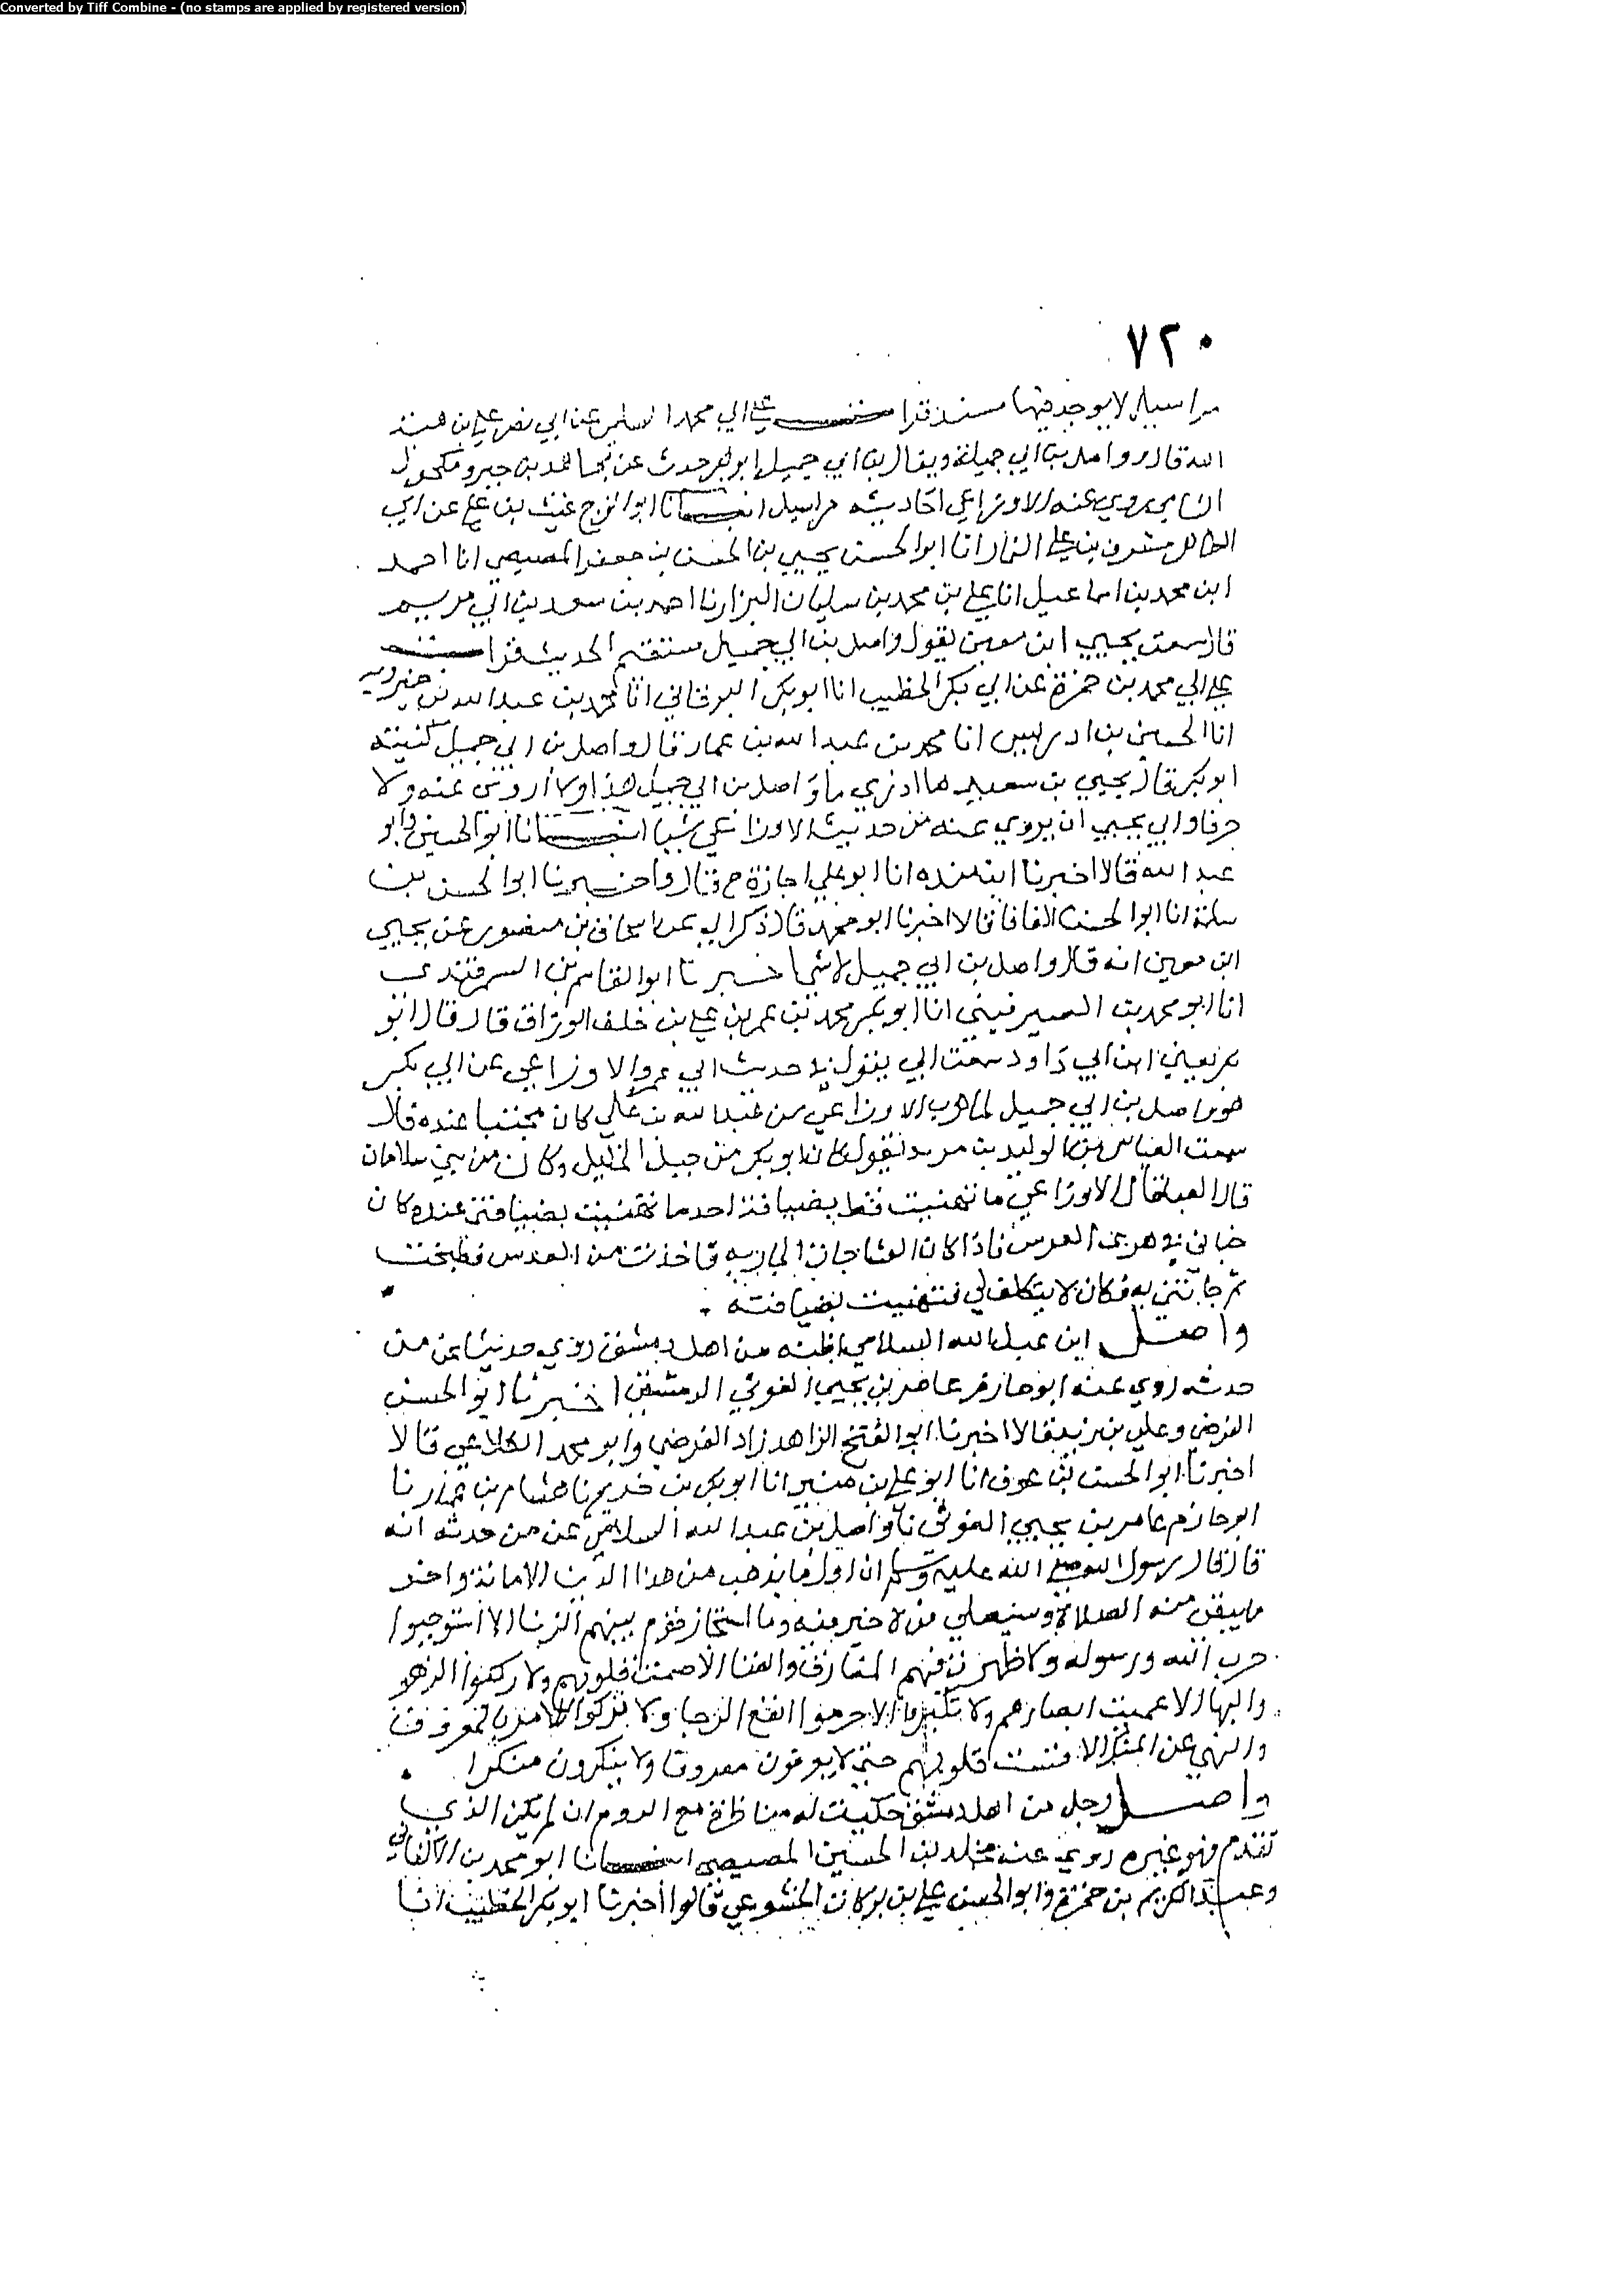 Converted by Tiff Combine - (no stamps are applied by registered version)
٧٢٠
مراسيل لا يوجد فيها مسند قرات على ابي محمد السلمي عن ابي نصر علي بن هبة
الله قال واصل بن ابي جميلة ويقال بن ابي جميل ابو بكر حدث عن مجاهد بن جبر ومكحول
الشامي يروي عنه الاوزاعي احاديثه مراسيل انبانا ابو الفرج غيث بن علي عن ابي
الطاهر مشرف بن علي التمار انا ابو الحسن يحيي بن الحسن بن جعفر المصيصي انا احمد
ابن محمد بن اسماعيل انا علي بن محمد بن سليمان البزار نا احمد بن سعد بن ابي مريم
قال سمعت يحيي ابن معين يقول واصل بن ابي جميل مستقيم الحديث قرات
علي ابي محمد بن حمزة عن ابي بكر الخطيب انا ابو بكر البرقاني انا محمد بن عبد الله بن خميرويه
انا الحسين بن ادريس انا محمد بن عبد الله بن عمار قال واصل بن ابي جميل كنيته
ابو بكر قال يحيي بن سعيد ما ادري ما واصل بن ابي جميل هذا ولا اروي عنه ولا
حرفا وابي يحيي ان يروي عنه من حديث الاوزاعي شيا انبانا ابو الحسين وابو
عبد الله قالا اخبرنا ابن منده انا ابو علي اجازة ح قال واخبرنا ابو الحسن بن
سلمة انا ابو الحسن الفافا قالا اخبرنا ابو محمد قال ذكر ابي عن اسحاق بن منصور عن يحيي
ابن معين انه قال واصل بن ابي جميل لا شي اخبرنا ابو القاسم بن السمرقندي
انا ابو محمد بن الصيرفيني انا ابو بكر محمد بن عمر بن علي بن خلف الوراق قال قال ابو
بكر يعني ابن ابي داود سمعت ابي يقول في حديث ابي عمرو الاوزاعي عن ابي بكر
هو واصل بن ابي جميل لما هرب الاوزاعي من عبد الله بن علي كان مختبيا عنده قال
سمعت العباس بن الوليد بن مريد يقول كان ابو بكر من جبل الخليل وكان من بني سلامان
قال العباس قال الاوزاعي ما تهنيت قط بضيافة احد ما تهنيت بضيافتي عنده كان
خباني في هري العدس فاذا كان العشا جات الجارية فاخذت من العدس فطبخت
ثم جاتني به فكان لا يتكلف لي فتهنيت بضيافته
واصل ابن عبد الله السلامي اظنه من اهل دمشق روي حديثا عن من
حدثه روي عنه ابو حازم عامر بن يحيي الغوثي الدمشقي اخبرنا ابو الحسن
الفرضي وعلي بن زيد قالا اخبرنا ابو الفتح الزاهد زاد الفرضي وابو محمد الكلاعي قالا
اخبرنا ابو الحسن بن عوف انا ابو علي بن منير انا ابو بكر بن خريم نا هشام بن عمار نا
ابو حازم عامر بن يحيي الغوثي نا واصل بن عبد الله السلامي عن من حدثه انه
قال قال رسول الله صلي الله عليه وسلم ان اول ما يذهب من هذا الدين الامانة واخر
ما يبقي منه الصلاة وسيصلي من لا خير فيه وما استجاز قوم بينهم الزنا الا استوجبوا
حرب الله ورسوله ولا ظهرت فيهم المعازف والغنا الا صمت قلوبهم ولا ركبوا الزهو
والبها الا عميت ابصارهم ولا تكبروا الا حرموا انفع الرجا ولا تركوا الامر بالمعروف
والنهي عن المنكر الا قست قلوبهم حتي لا يعرفون معروفا ولا ينكرون منكرا
واصل رجل من اهل دمشق حكيت له مناظرة مع الروم ان لم يكن الذي
تقدم فهو غيره روي عنه مخلد بن الحسين المصيصي انبانا ابو محمد بن الاكفاني
وعبد الكريم بن حمزة وابو الحسن علي بن بركات الخشوعي قالوا اخبرنا ابو بكر الخطيب انا